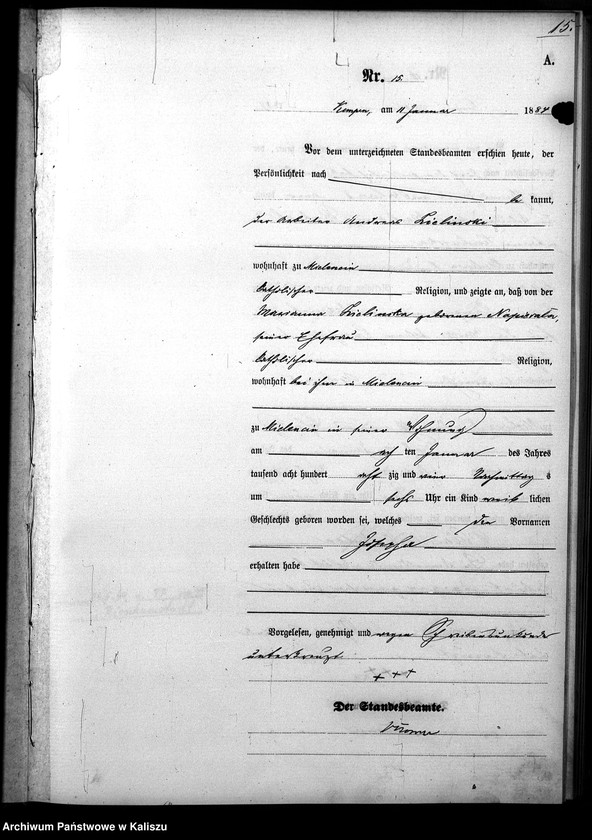 15.
A.
Nr. 15.
Kempen, am 11 Januar 1884
Vor dem unterzeichneten Standesbeamten erschien heute, der
Persönlichkeit nach
be kannt,
der Arbeiter Andreas Zielinski
wohnhaft zu Mielencin
katholischer Religion, und zeigte an, daß von der
Marianna Zielinska geborenen Naparata,
seiner Ehefrau
katholischer Religion,
wohnhaft bei ihm in Mielencin
zu Mielencin in seiner Wohnung
am ten Januar des Jahres
tausend acht hundert acht zig und Nachmittag s
um sechs Uhr ein Kind weib lichen
Geschlechts geboren worden sei, welches den Vornamen
Josepha
erhalten habe
Vorgelesen, genehmigt und wegen Schreibensunkunde
unterkreuzt
+ + +
Der Standesbeamte.
Archiwum Państwowe w Kaliszu